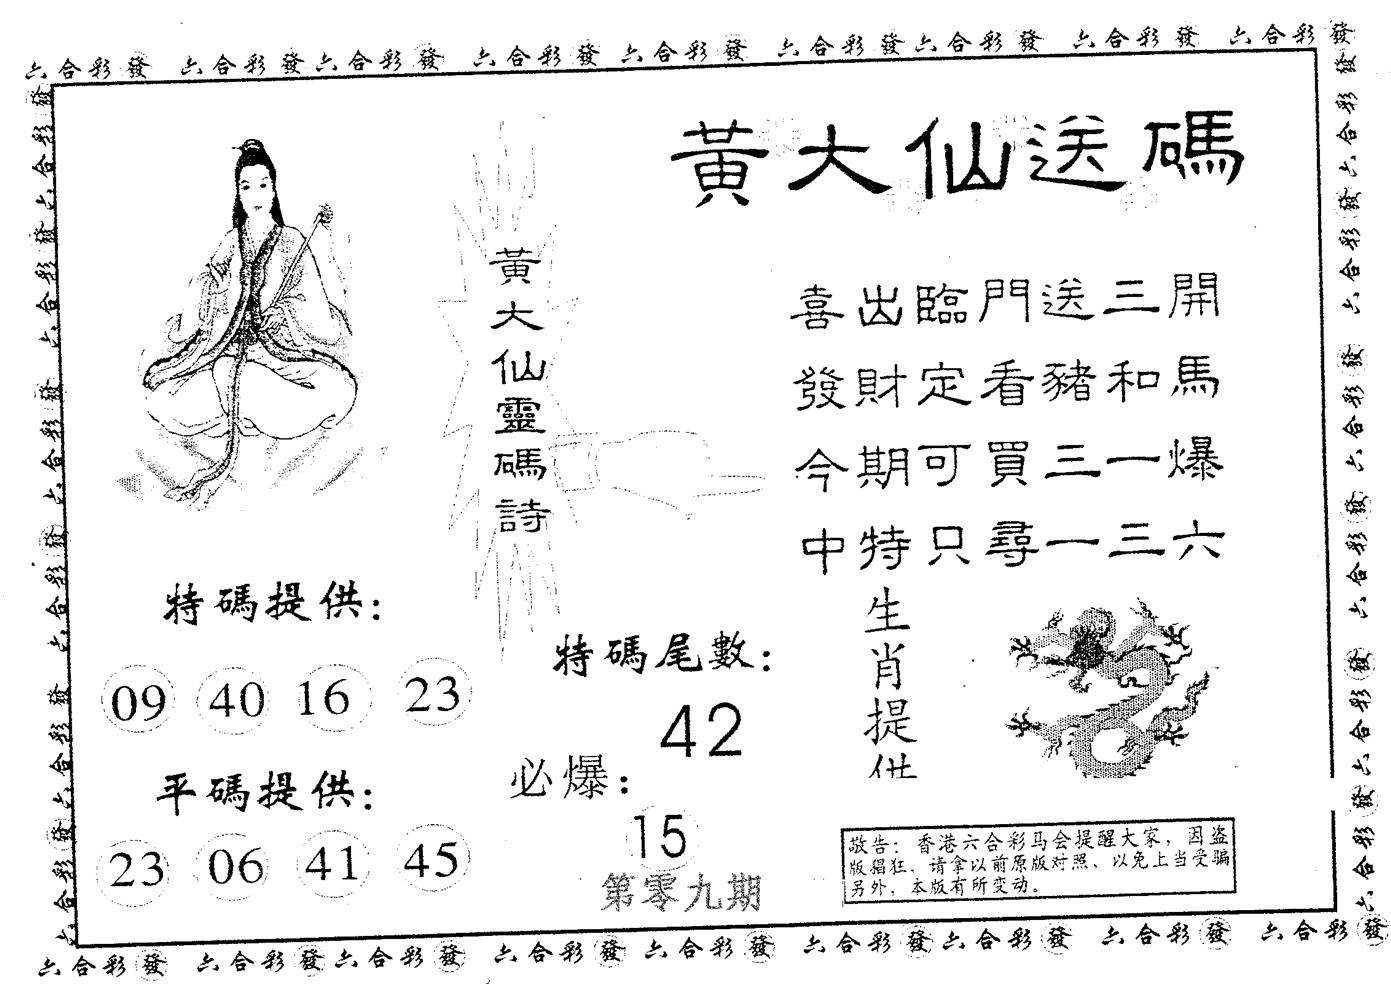 六合彩發 六合彩發六合彩發 六合彩發 六合彩發 六合彩發六合彩發 六合彩發 六合彩發
黃大仙送碼
黃大仙靈碼詩
喜出臨門送三開
發財定看豬和馬
今期可買三一爆
中特只尋一三六
特碼提供:
09 40 16 23
平碼提供:
23 06 41 45
特碼尾數:
42
必爆:
15
第零九期
生肖提供
敬告：香港六合彩马会提醒大家，因盗
版猖狂，请拿以前原版对照、以免上当受骗
另外，本版有所变动。
六合彩發 六合彩發六合彩發 六合彩發 六合彩發 六合彩發六合彩發 六合彩發 六合彩發